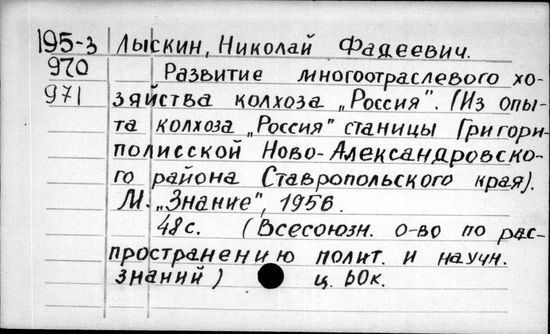 195-3 Лыскин, Николай Фадеевич.
970 Развитие многоотраслевого хо-
971 зяйства колхоза „Россия". (Из опы-
та колхоза „Россия" станицы Григори-
полисской Ново-Александровско-
го района Ставропольского края).
М. „Знание", 1956.
48с. (Всесоюзн. о-во по рас-
пространению полит. и научн.
знаний) ц. 60к.